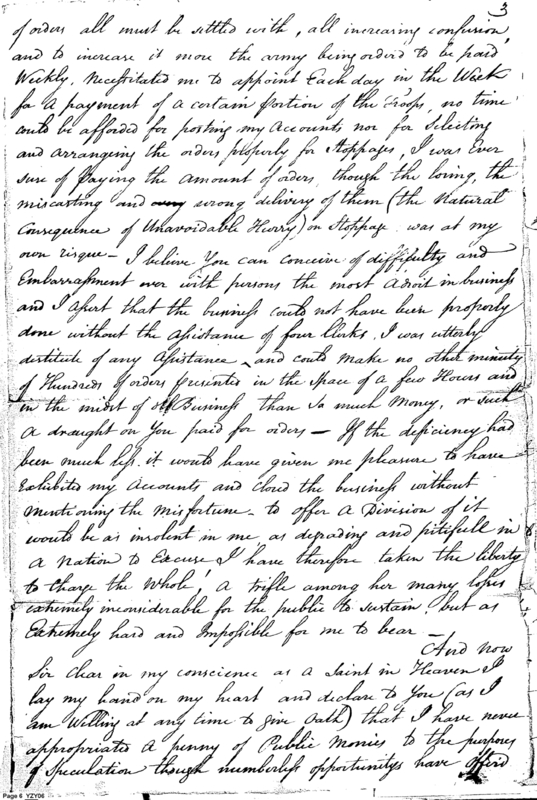 3
of orders all must be settled with, all increasing confusion,
and to increase it more the army being order'd to be paid
Weekly, Necessitated me to appoint Each day in the Week
for A payment of a certain portion of the Troops, no time
could be afforded for posting my Accounts nor for Selecting
and arranging the orders properly for Stoppages, I was Ever
sure of paying the amount of orders, though the losing, the
miscasting and wrong delivery of them (the Natural
Consequence of Unavoidable Hurry) on Stoppage was at my
own risque — I believe You can conceive of difficulty and
Embarrassment even with persons the most Adroit in business
and I assert that the business could not have been properly
done without the Assistance of four Clerks, I was utterly
destitute of any Assistance, and could make no other minute
of Hundreds of orders presented in the space of a few Hours and
in the midst of Business than So much Money, or such
A draught on You paid for orders — If the deficiency had
been much less, it would have given me pleasure to have
Exhibited my Accounts and closd the business without
mentioning the misfortune — to offer A Division of it
would be as insolent in me as degrading and pitifull in
A Nation to Excuse, I have therefore taken the liberty
to Charge the Whole, A trifle among her many losses
extremely inconsiderable for the public to sustain, but as
Extremely hard and Impossible for me to bear —
And now
Sir clear in my conscience as a Saint in Heaven I
lay my hand on my heart and declare to You (as I
am Willing at any time to give Oath) that I have never
appropriated A penny of Public Monies to the purposes
of Speculation though numberless opportunitys have offerd
Page 6 YZY06